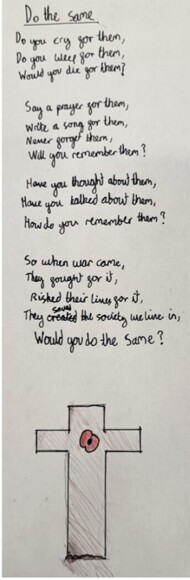 Do the same
Do you cry for them,
Do you weep for them,
Would you die for them?
Say a prayer for them,
Write a song for them,
Never forget them,
Will you remember them?
Have you thought about them,
Have you talked about them,
How do you remember them?
So when war came,
They fought for it,
Risked their lives for it,
They saved the society we live in,
Would you do the same?